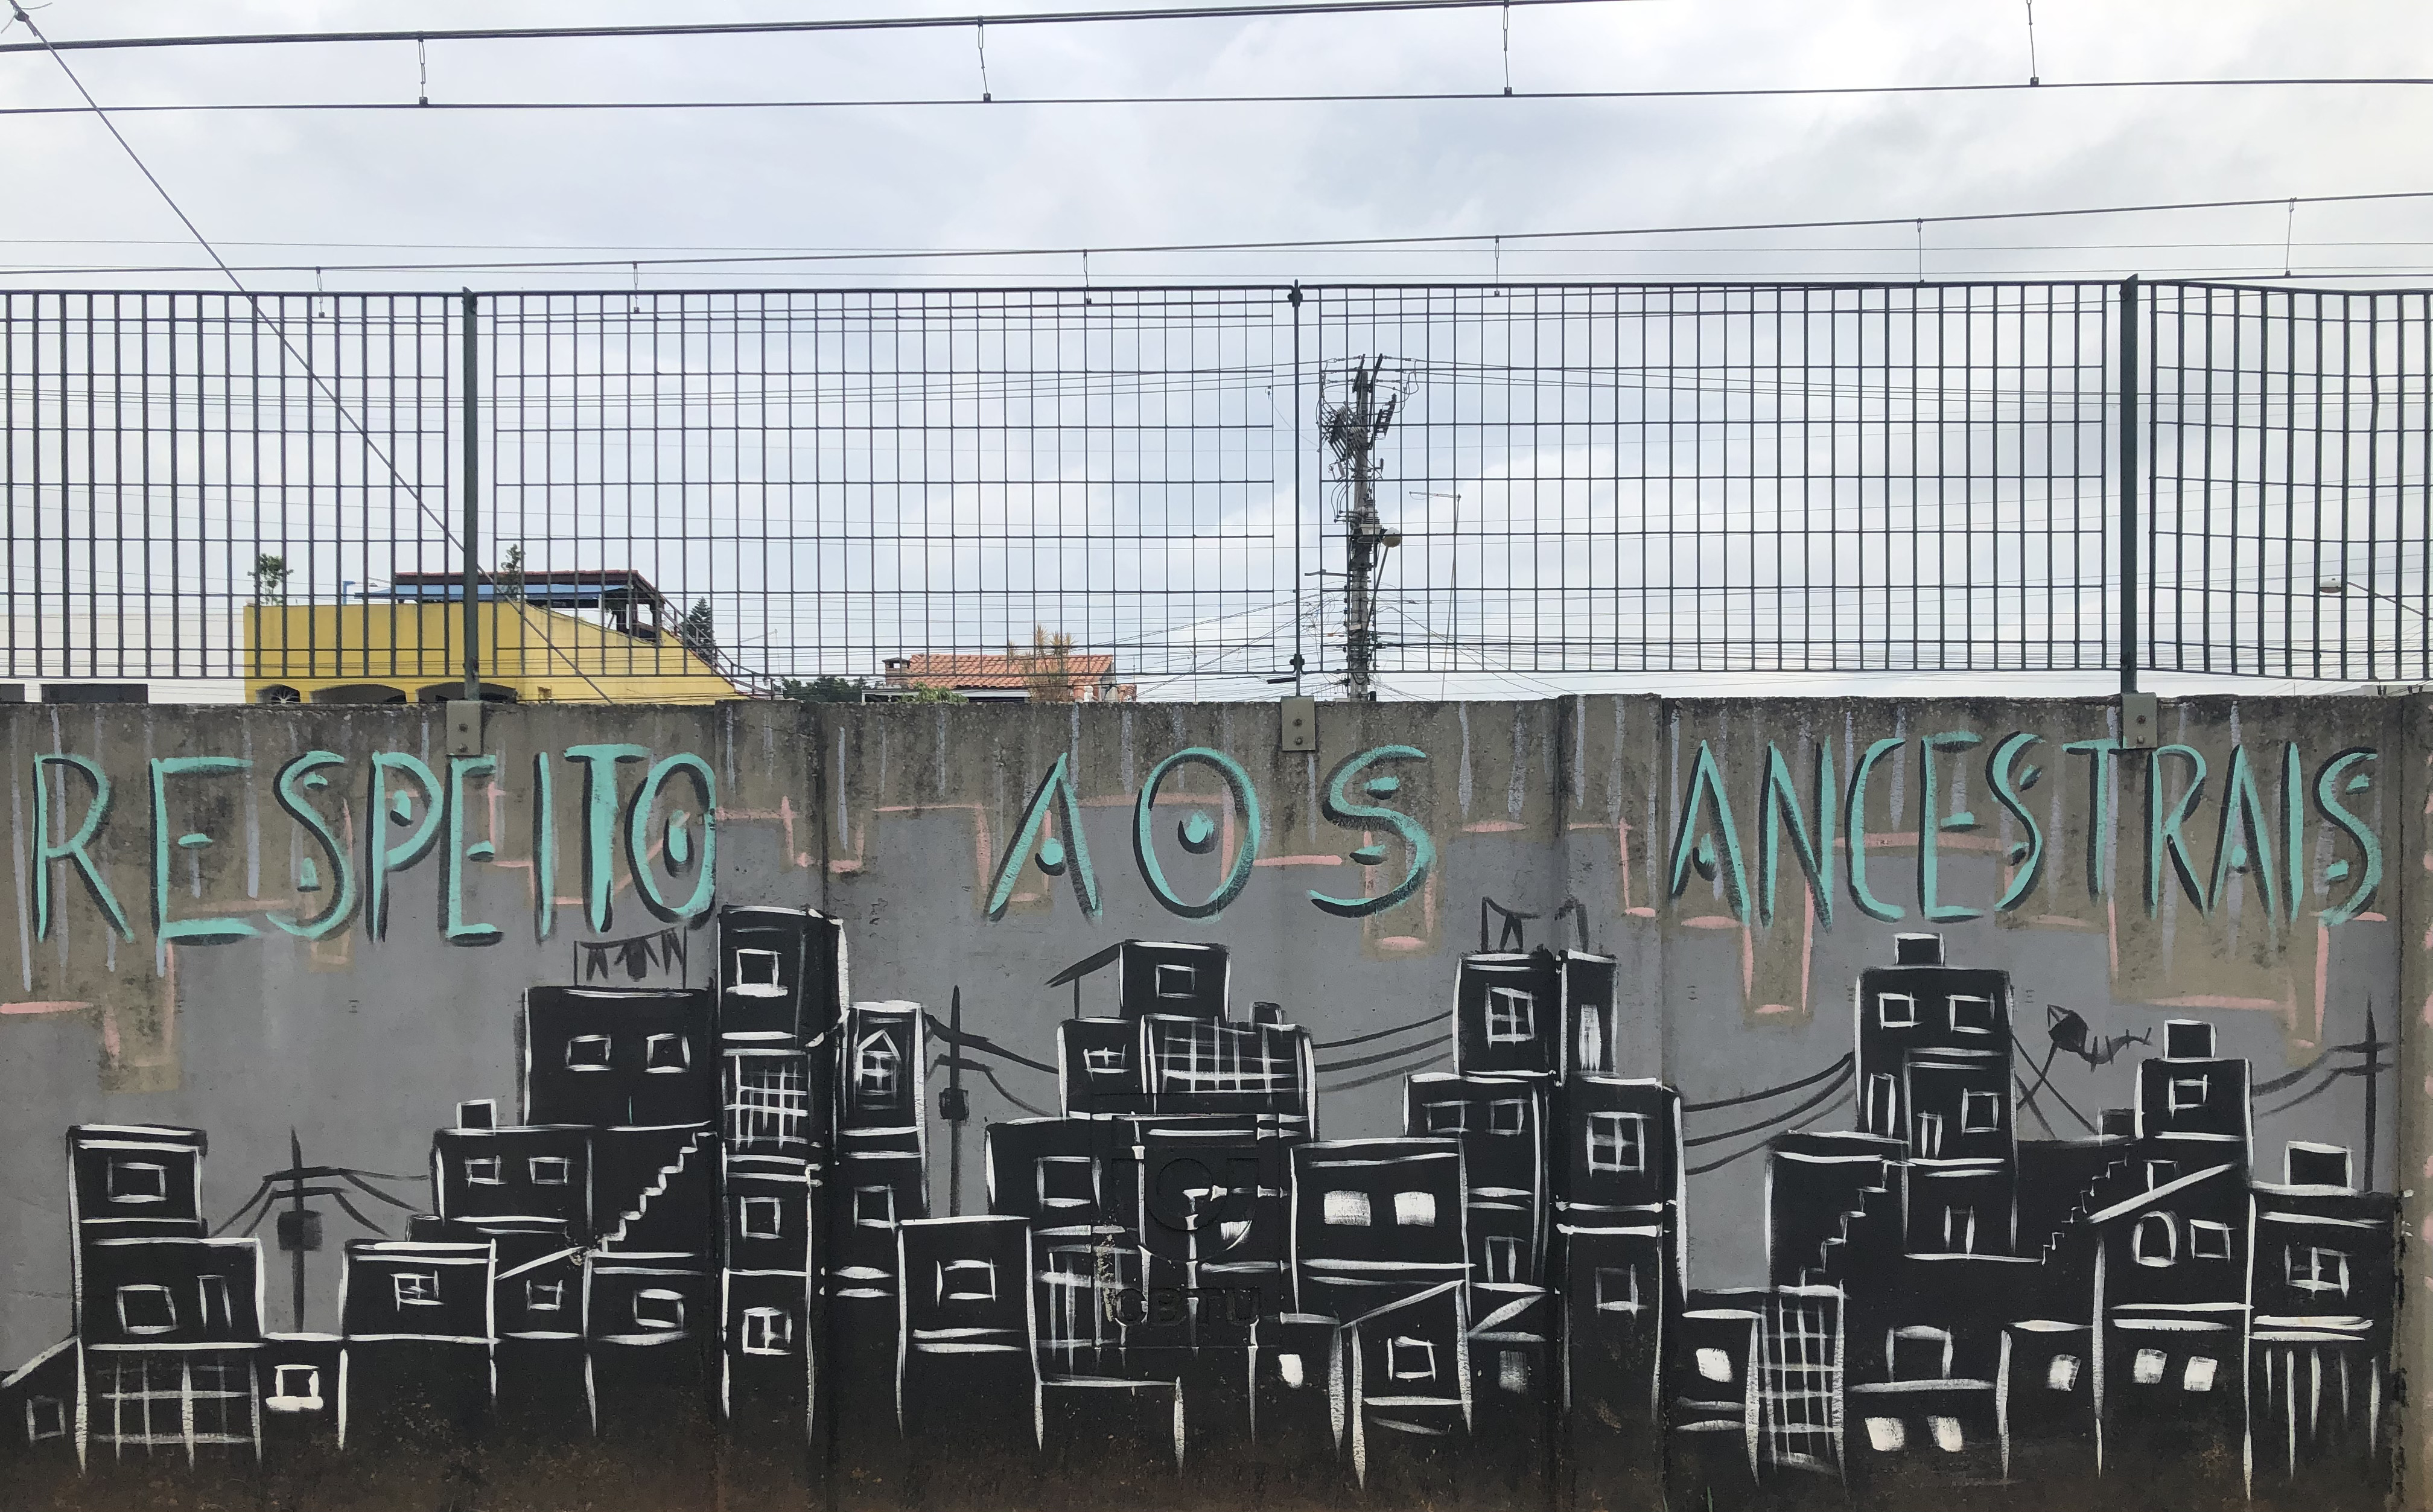 RESPEITO AOS ANCESTRAIS
CBTU